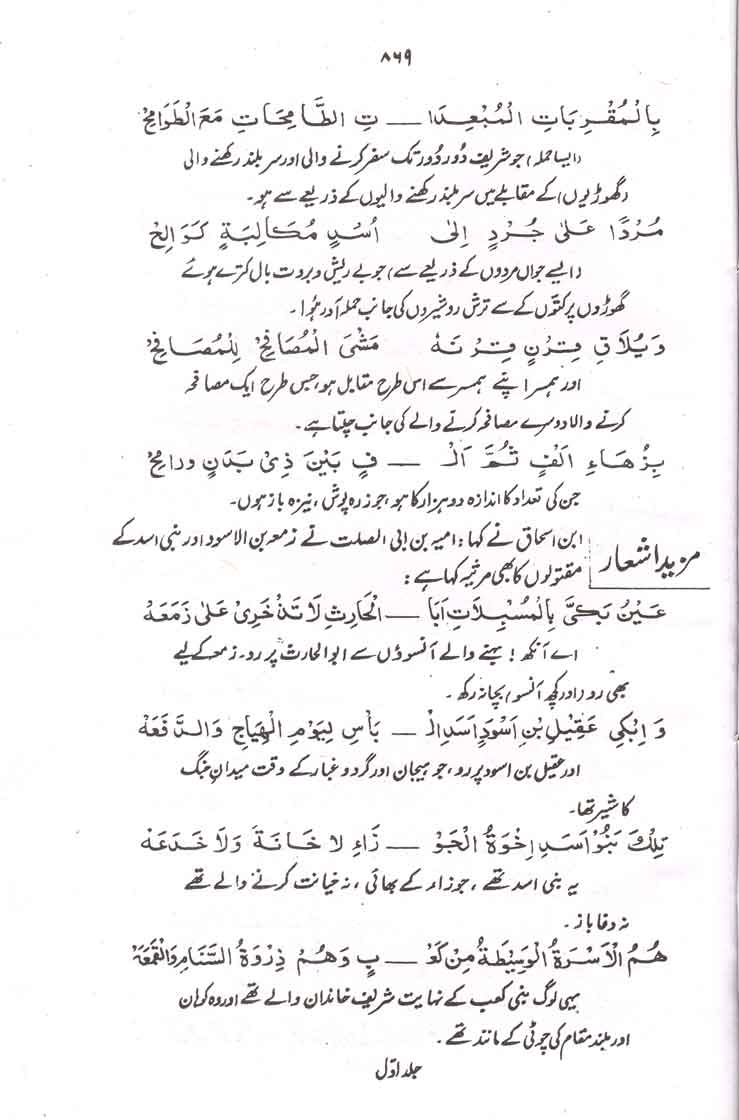 ۸۶۹
بِالْمُقْرِبَاتِ الْمُبْعِدَا — تِ الطَّامِحَاتِ مَعَ الطَوَامِحْ
(ایسا حملہ) جو شریف دُور دُور تک سفر کرنے والی اور سربلند رکھنے والی
(گھوڑیوں) کے مقابلے میں سربلند رکھنے والیوں کے ذریعے سے ہو۔
مُرْدًا عَلیٰ جُرْدٍ اِلیٰ اُسْدٍ مُکَالِبَۃٍ کَوَالِحْ
(ایسے جواں مردوں کے ذریعے سے) جو بے ریش و بروت بال کترے ہوئے
گھوڑوں پر کتوں کے سے ترش رو شیروں کی جانب حملہ آور ہُوا۔
وَیُلَاقِ قِرْنٍ قِرْنَہٗ مَشْیَ الْمُصَافِحْ لِلْمُصَافِحْ
اور ہمسر اپنے ہمسر سے اس طرح مقابل ہو، جس طرح ایک مصافحہ
کرنے والا دوسرے مصافحہ کرنے والے کی جانب چلتا ہے۔
بِزُھَاءِ اَلْفٍ ثُمَّ اَلْ — فٍ بَیْنَ ذِیْ بَدَنٍ ورامِحْ
جن کی تعداد کا اندازہ دو ہزار کا ہو، جو زرہ پوش، نیزہ باز ہوں۔
مزید اشعار
ابن اسحاق نے کہا: امیہ بن ابی الصلت نے زمعہ بن الاسود اور بنی اسد کے
مقتولوں کا بھی مرثیہ کہا ہے:
عَیْنُ بَکِّیْ بِالْمُسْبِلَاتِ اَبَا — الْحَارِثِ لَا تَذْخَرِیْ عَلیٰ زَمَعَہْ
اے آنکھ! بہنے والے آنسوؤں سے ابو الحارث پر رو۔ زمعہ کے لیے
بھی رو (اور کچھ آنسو) بچا نہ رکھ۔
وَ ابْکِیْ عَقِیْلَ بْنِ اَسْوَدٍ اَسَدَ الْ — بَأْسِ لِیَوْمِ الْھِیَاجِ وَالدَّفَعَہْ
اور عقیل بن اسود پر رو، جو ہیجان اور گرد و غبار کے وقت میدانِ جنگ
کا شیر تھا۔
تِلْکَ بَنُوْ اَسَدٍ اِخْوَۃُ الْجَوْ — زَاءِ لَا خَانَۃَ وَلَا خَدَعَہْ
یہ بنی اسد تھے، جوزاء کے بھائی، نہ خیانت کرنے والے تھے
نہ دغا باز۔
ھُمُ الْاُسْرَۃُ الْوَسِیْطَۃُ مِنْ کَعْ — بٍ وَھُمْ ذِرْوَۃُ السَّنَامِ وَالْقَمَعَہْ
یہی لوگ بنی کعب کے نہایت شریف خاندان والے تھے اور وہ کوہان
اور بلند مقام کی چوٹی کے مانند تھے۔
جلد اوّل